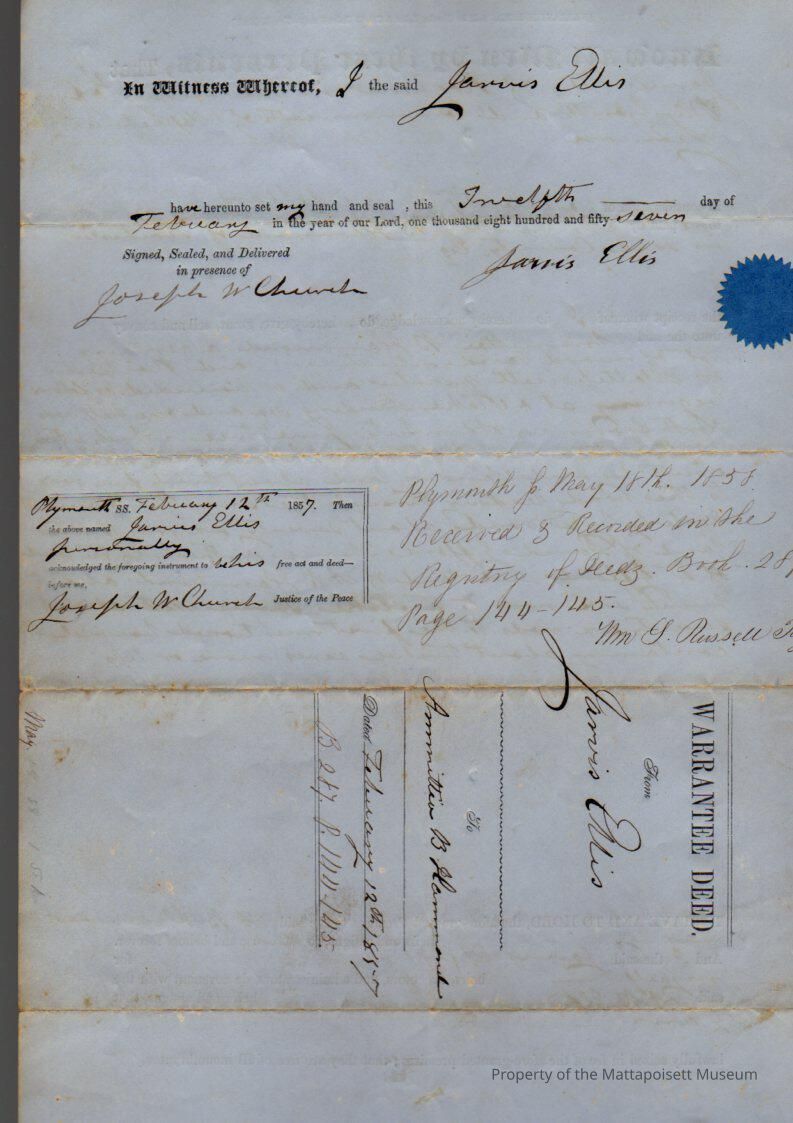 In Witness Whereof, I the said Jarvis Ellis
have hereunto set my hand and seal , this Twelfth day of
February in the year of our Lord, one thousand eight hundred and fifty-seven
Signed, Sealed, and Delivered
in presence of
Jarvis Ellis
Joseph W Church
Plymouth SS. February 12th 1857. Then
the above named Jarvis Ellis
personally
acknowledged the foregoing instrument to be his free act and deed—
before me,
Joseph W Church Justice of the Peace
Plymouth ss. May 18th. 1858
Received & Recorded in the
Registry of Deeds. Book. 287
Page 144-145.
Wm S. Russell
WARRANTEE DEED.
From
Jarvis Ellis
To
Ammittai B Hammond
Dated February 12th 1857
B 287. P. 144-145
May
Property of the Mattapoisett Museum